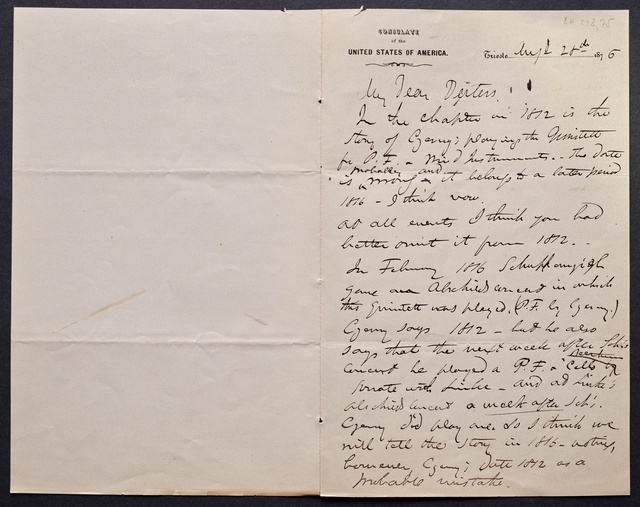 CONSULATE
of the
UNITED STATES OF AMERICA.
Trieste, 28th 1876
My Dear Deiters,
In the chapter on 1812 is the
story of Czerny's playing the Quintett
for P.F. & Wind Instruments. - The date
is probably wrong and it belongs to a later period
1816 - I think now.
At all events I think you had
better omit it from 1812. -
In February 1816 Schuppanzigh
gave an Abschied concert in which
this Quintett was played. (P.F. by Czerny.)
Czerny says 1812 - but he also
says that the next week after Sch's
concert he played a Beethoven P.F. & Cello
Sonate with Linke - and at Linke's
Abschied concert a week after Sch's.
Czerny did play one. So I think we
will tell the story in 1816 - noting,
however, Czerny's date 1812 as a
probable mistake.